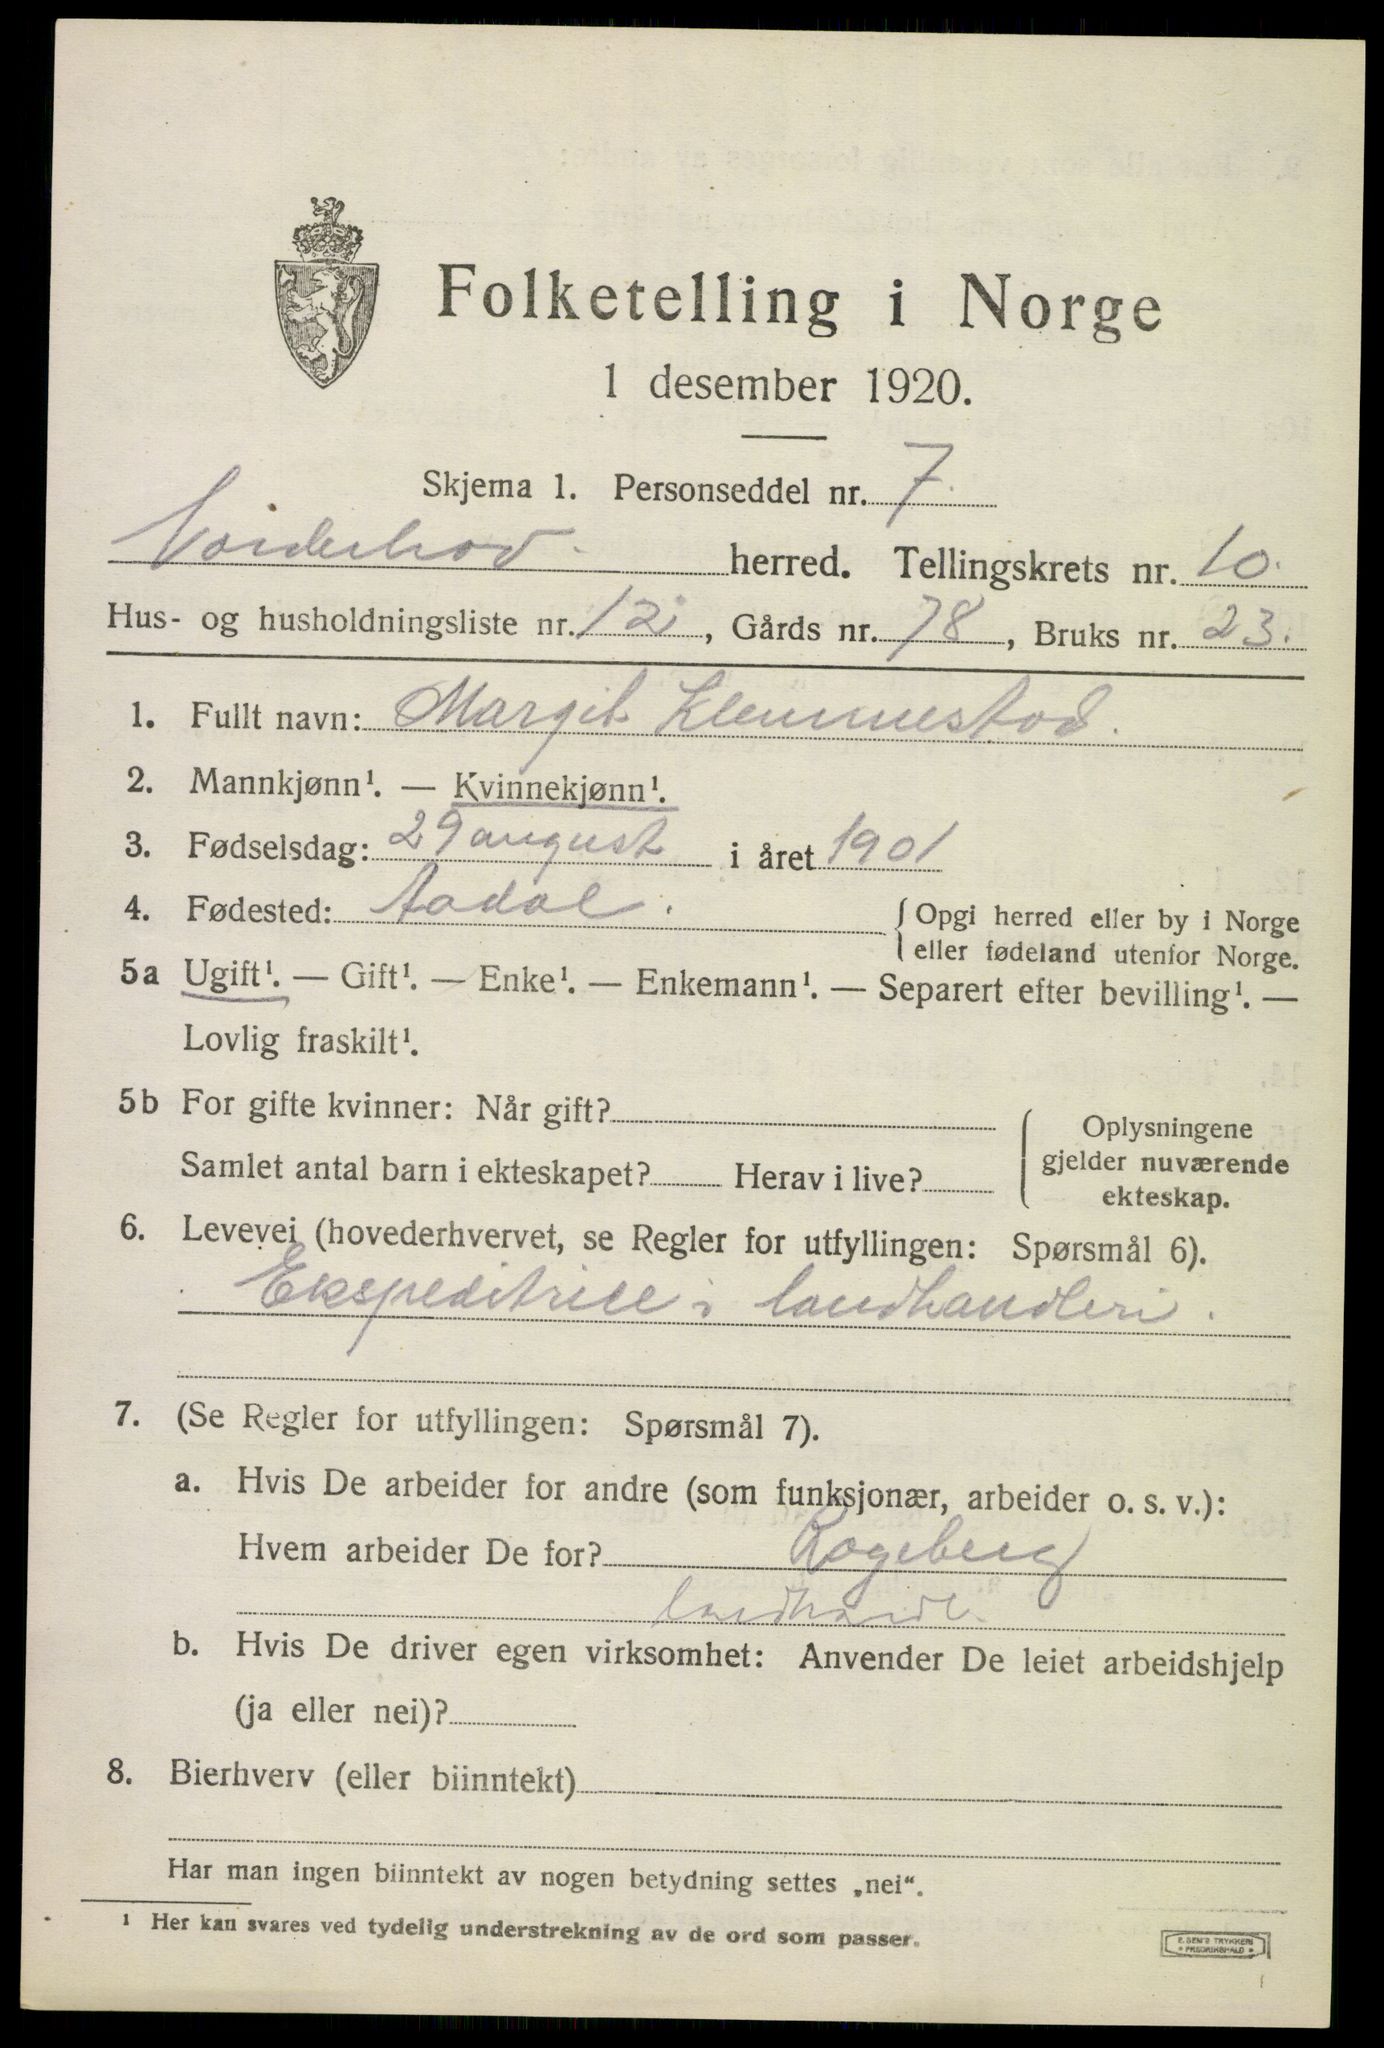 Folketelling i Norge
1 desember 1920.
Skjema 1. Personseddel nr. 7.
Norderhov. herred. Tellingskrets nr. 10.
Hus- og husholdningsliste nr. 12, Gårds nr. 78, Bruks nr. 23.
1. Fullt navn: Margit Klemmestad.
2. Mannkjønn¹. — Kvinnekjønn¹.
3. Fødselsdag: 29 august i året 1901
4. Fødested: Aadal. { Opgi herred eller by i Norge
eller fødeland utenfor Norge.
5a Ugift¹. — Gift¹. — Enke¹. — Enkemann¹. — Separert efter bevilling¹. —
Lovlig fraskilt¹.
5b For gifte kvinner: Når gift?
Samlet antal barn i ekteskapet? Herav i live?
{ Oplysningene
gjelder nuværende
ekteskap.
6. Levevei (hovederhvervet, se Regler for utfyllingen: Spørsmål 6).
Ekspeditrice i landhandleri.
7. (Se Regler for utfyllingen: Spørsmål 7).
a. Hvis De arbeider for andre (som funksjonær, arbeider o. s. v.):
Hvem arbeider De for? Rogeberg
landhandl.
b. Hvis De driver egen virksomhet: Anvender De leiet arbeidshjelp
(ja eller nei)?
8. Bierhverv (eller biinntekt)
Har man ingen biinntekt av nogen betydning settes „nei“.
¹ Her kan svares ved tydelig understrekning av de ord som passer.
E. SEM'S TRYKKERI
FREDRIKSHALD